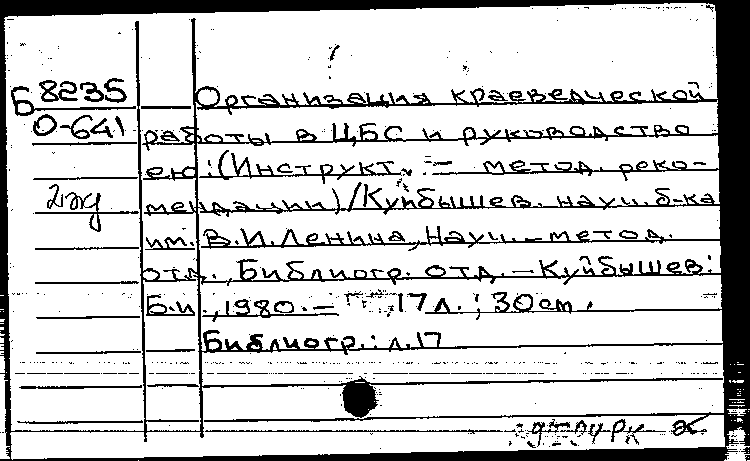 Б 8235 Организация краеведческой
О-641 работы в ЦБС и руководство
ею: (Инструкт. - метод. реко-
2 жд мендации) / Куйбышев. науч. б-ка
им. В.И. Ленина, Науч.-метод.
отд., Библиогр. отд. - Куйбышев:
Б.и., 1980. - 17 л.; 30 см.
Библиогр.: л. 17
РК